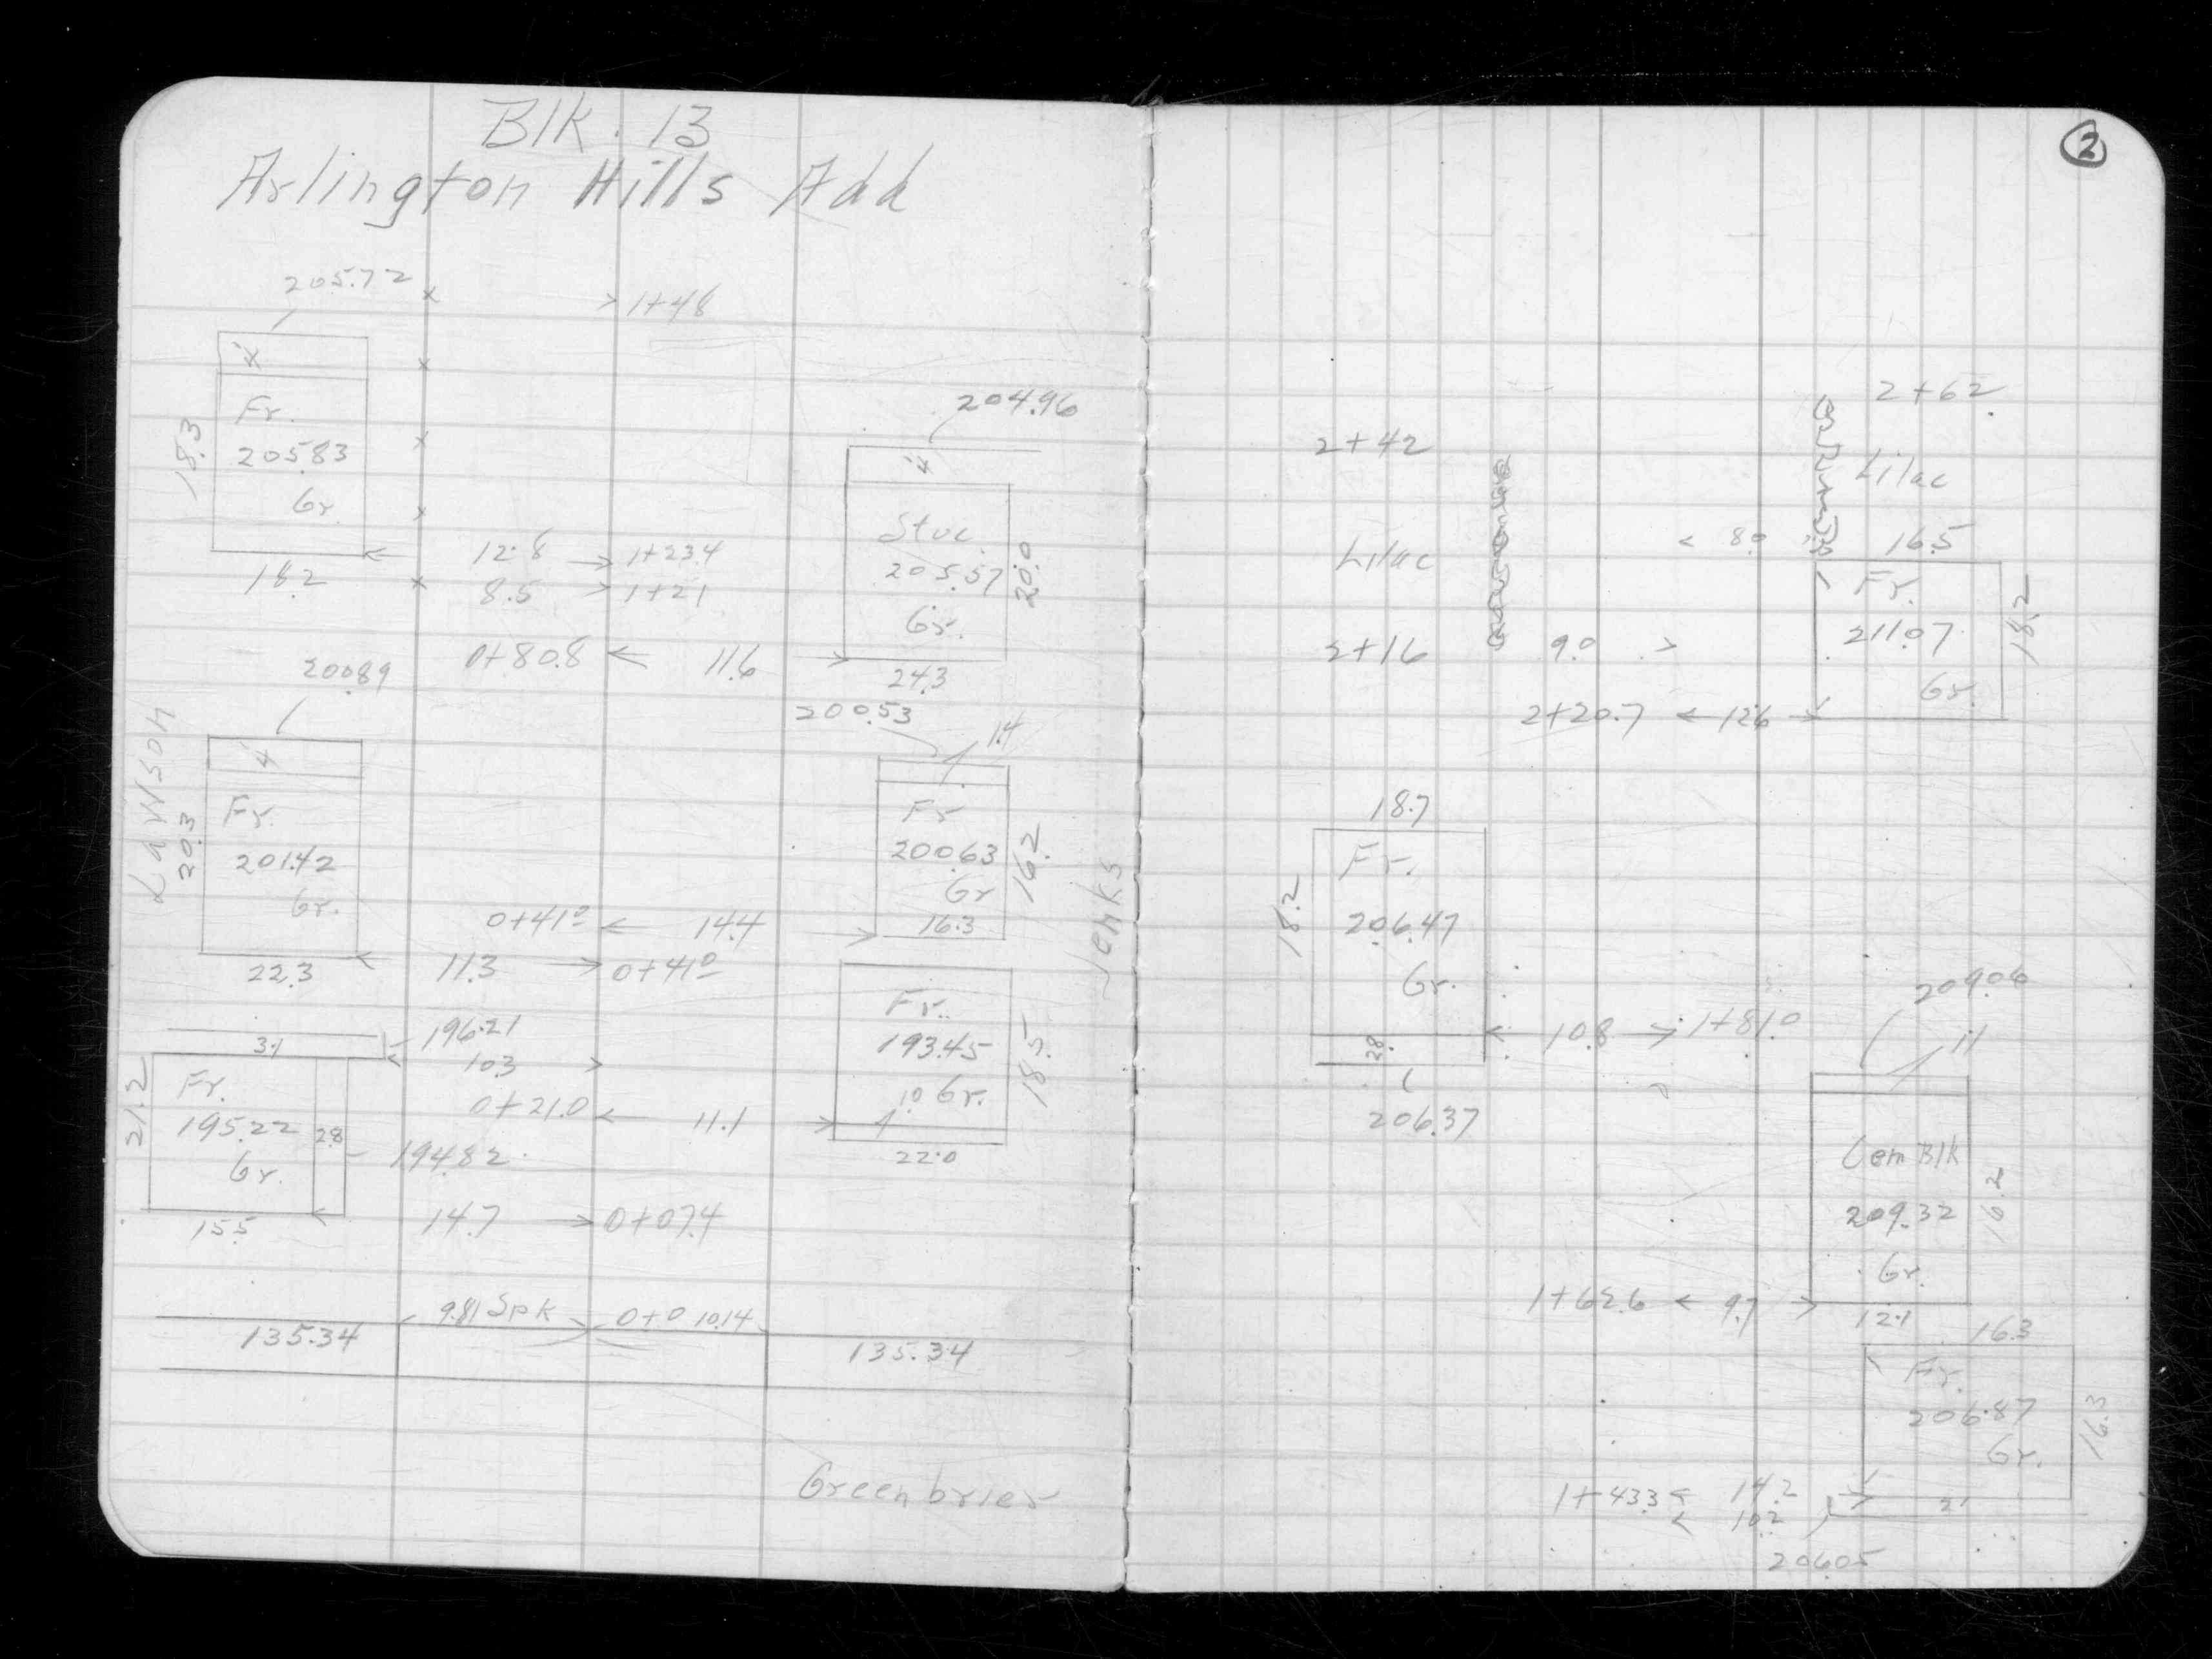 Blk. 13
Arlington Hills Add
205.72 x > 1+48
4'
x
Fr.
205.83
Gr.
18.3
18.2
x
x
x
12.8 → 1+23.4
8.5 > 1+21
204.96
4'
Stuc.
205.57
Gr.
20.0
24.3
0+80.8 ← 11.6 →
200.89
4'
Fr.
201.42
Gr.
20.3
22.3
Lawson
200.53
1.4
Fr
200.63
Gr
16.3
16.2
0+41.0 ← 14.4 →
← 11.3 → 0+41.0
Jenks
196.21
3.1
< 10.3 >
Fr.
195.22
Gr.
2.8
21.2
15.5
194.82
Fr.
193.45
1.0 Gr.
18.5
22.0
0+21.0 ← 11.1 →
← 14.7 → 0+07.4
9.81 Spk 0+0 10.14
135.34
135.34
Greenbrier
2
2+42
Lilac
2+16
9.0 >
2+62
Lilac
< 8.0
16.5
Fr.
211.07
Gr.
18.2
2+20.7 ← 12.6 →
18.7
Fr.
206.47
Gr.
18.2
2.8
206.37
← 10.8 → 1+81.0
209.06
1.1
Cem Blk
209.32
Gr.
16.2
12.1
1+62.6 < 9.7 >
16.3
Fr.
206.87
Gr.
16.3
2'
1+43.3 < 14.2 →
< 10.2
206.05